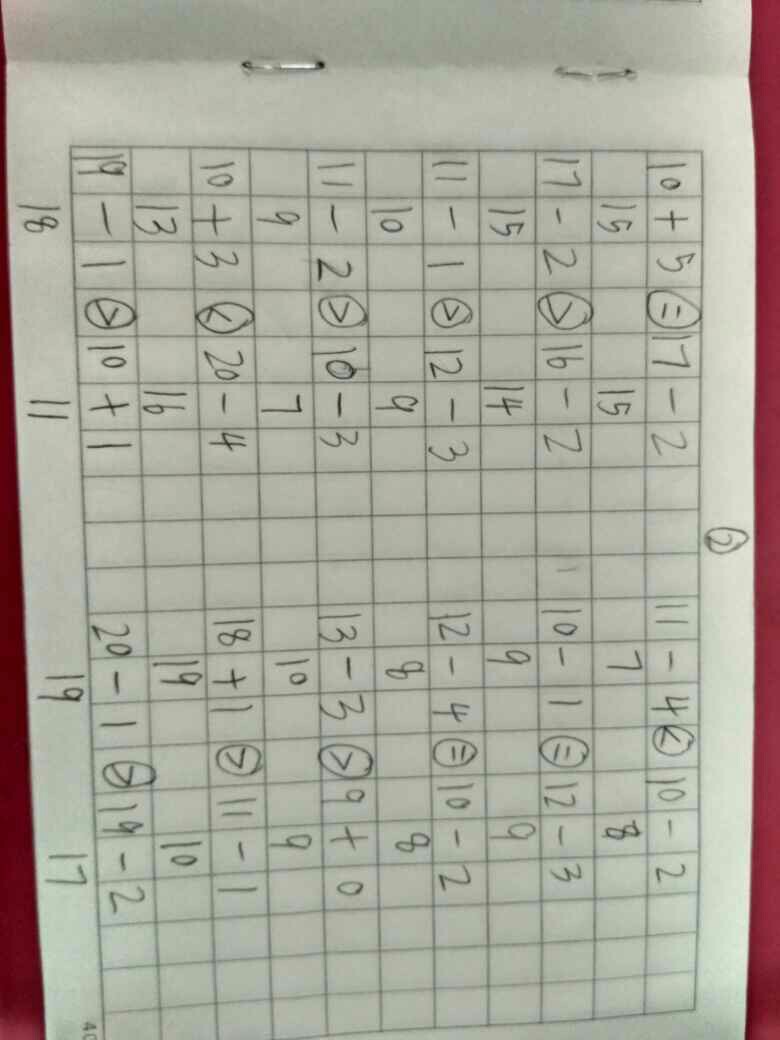 ②
10 + 5 = 17 - 2 11 - 4 < 10 - 2
15 15 7 8
17 - 2 > 16 - 2 10 - 1 = 12 - 3
15 14 9 9
11 - 1 > 12 - 3 12 - 4 = 10 - 2
10 9 8 8
11 - 2 > 10 - 3 13 - 3 > 9 + 0
9 7 10 9
10 + 3 < 20 - 4 18 + 1 > 11 - 1
13 16 19 10
19 - 1 > 10 + 1 20 - 1 > 19 - 2
18 11 19 17